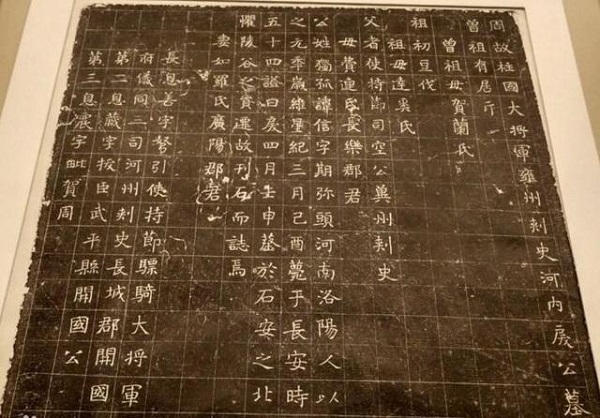 周故柱國大將軍雍州刾史河内戾公墓
曾祖有居斤
曾祖母賀蘭氏
祖初豆伐
祖母達奚氏
父者使持節司空公冀州刾史
母費連氏長樂郡君
公姓獨孤諱信字期弥頭河南洛陽人以
之元年歲維星紀三月己酉薨于長安時
五十四謚曰戾四月壬申葬於石安之北
懼陵谷之貿遷故刊石而誌焉
妻如羅氏廣陽郡君
長息善字弩引使持節驃騎大將軍
府儀同三司河州刾史長城郡開國
第二息藏字拔臣武平縣開國公
第三息字毗賀周